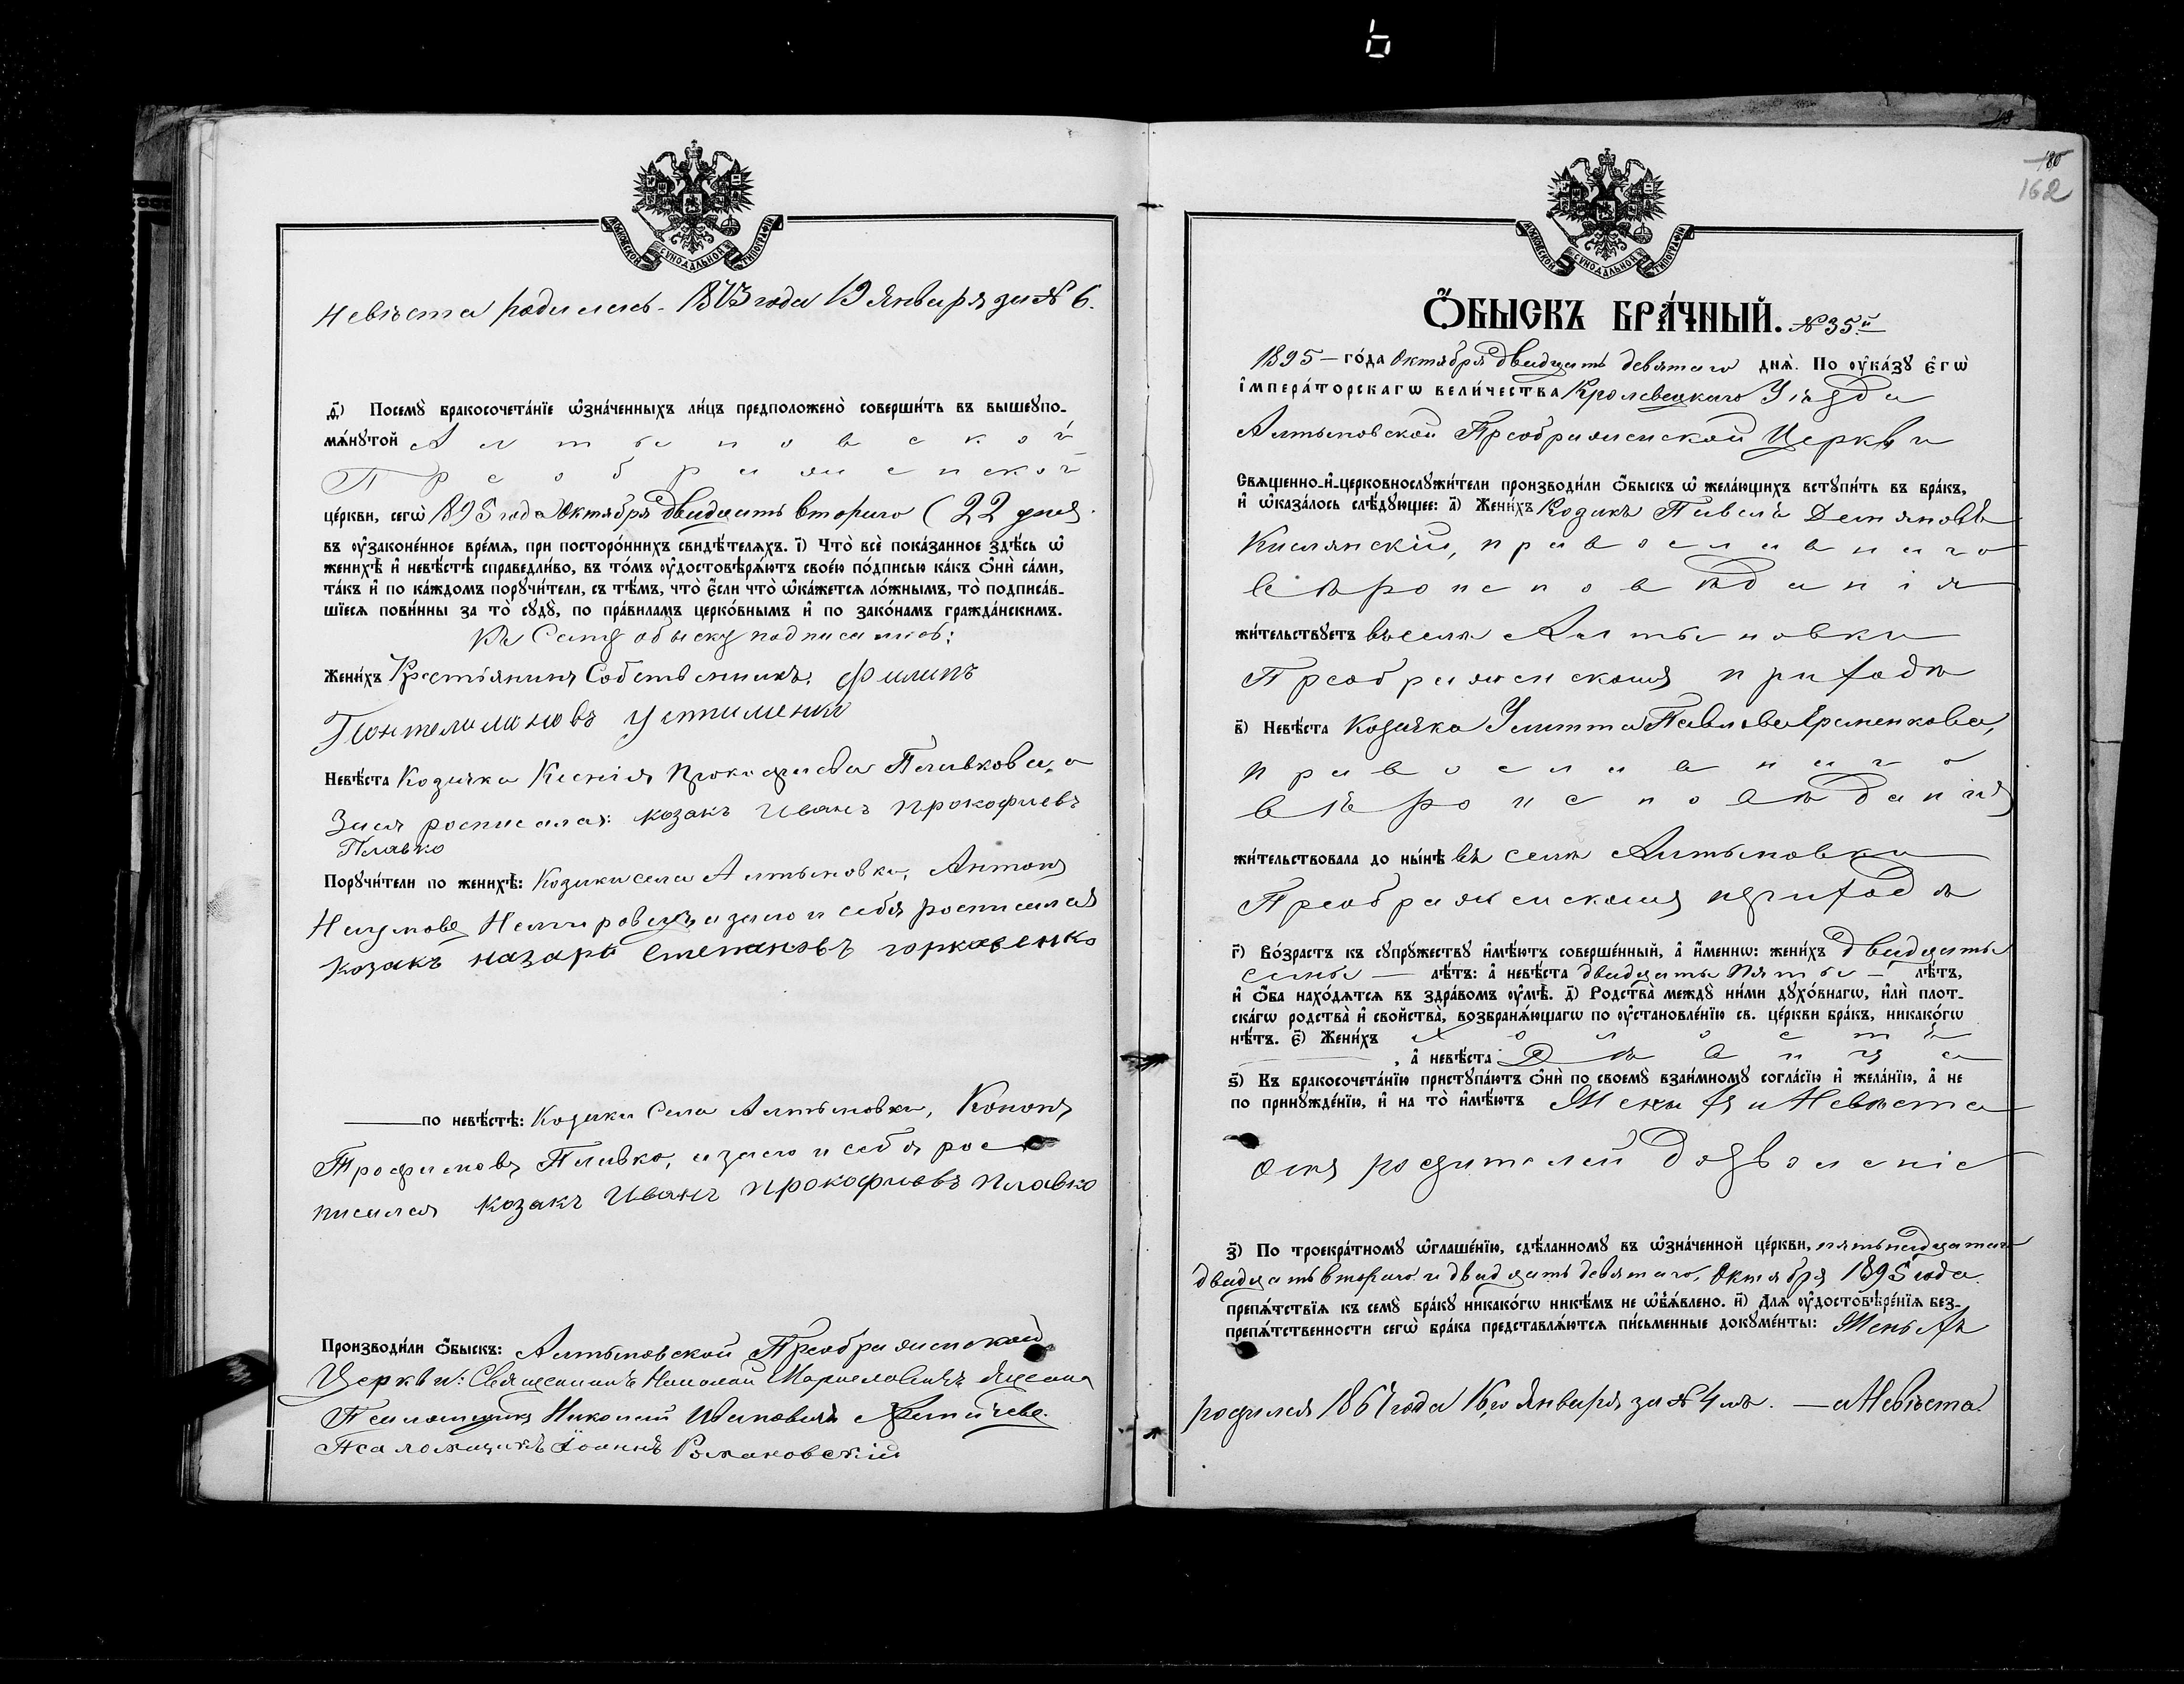 МОСКОВСКОЙ СУНОДАЛЬНОЙ ТИПОГРАФІИ
Невѣста родилась - 1873 года 19 Января за № 6.
д҃і) Посемꙋ̀ бракосочета́нїе ѡ҆зна́ченныхъ ли́цъ предположено̀ соверши́ть въ вышеꙋпо-
мѧ́нꙋтой Алтыновской
Преображенской
це́ркви, сегѡ̀ 1895 года Октября двадцать втораго (22 дня
въ ᲂу҆зако́нённое вре́мѧ, при посторо́ннихъ свидѣ́телѧхъ. і҃) Что̀ всѐ пока́занное здѣ́сь ѡ҆
женихѣ̀ и҆ невѣ́стѣ справедли́во, въ то́мъ ᲂу҆достовѣрѧ́ютъ свое́ю по́дписью ка́къ ѻ҆нѝ са́ми,
та́къ и҆ по ка́ждомъ порꙋчи́тели, съ тѣ́мъ, что̀ є҆́сли что̀ ѡ҆ка́жетсѧ ло́жнымъ, то̀ подписа́в-
шїесѧ пови́нны за то̀ сꙋдꙋ̀, по пра́виламъ церко́внымъ и҆ по зако́намъ гражда́нскимъ.
Къ Сему обыску подписались:
Жени́хъ Крестьянинъ Собственникъ: Филипъ
Пантелимоновъ Устименко
Невѣ́ста Козачка Ксенія Прокофиева Плавкова, а
Зися росписался: козакъ Иванъ Прокофиевъ
Плавко
Порꙋчи́тели по женихѣ̀: Козаки села Алтыновки, Антонъ
Наумовъ Немировецъ, а за его и себя росписался
козакъ назаръ Степановъ горкавенко
по невѣ́стѣ: Козаки Села Алтыновки, Кононъ
Трофимовъ Плавко, а за его и себя рос-
писался козакъ Иванъ Прокофиевъ плавко
Производи́ли ѻ҆́быскъ: Алтыновской Преображенской
Церкви: Священникъ Николай
Псаломщикъ Николай Ивановичъ
Псаломщикъ Іоаннъ Романовскій
180
162
МОСКОВСКОЙ СУНОДАЛЬНОЙ ТИПОГРАФІИ
Ѻ҆́БЫСКЪ БРА́ЧНЫЙ. № 35й
1895 – го́да Октября двадцать девятаго днѧ̀. По ᲂу҆ка́зꙋ є҆гѡ̀
і҆мпера́торскагѡ вели́чества Кролевецкаго Уѣзда
Алтыновской Преображенской Церкви
Свѧщенно-и҆-церковнослꙋжи́тели производи́ли ѻ҆́быскъ ѡ҆ жела́ющихъ встꙋпи́ть въ бра́къ,
и҆ ѡ҆каза́лось слѣ́дꙋющее: а҃) Жени́хъ Козакъ Павелъ Демяновъ
Кислянскій, православнаго
вѣроисповѣданія
жи́тельствꙋетъ въ селѣ Алтыновки
Преображенскомъ приходѣ
в҃) Невѣ́ста Козачка Улитта Павлова Яременкова,
православнаго
вѣроисповѣданія
жи́тельствовала до ны́нѣ въ селѣ Алтыновки
Преображенскомъ приходѣ
г҃) Во́зрастъ къ сꙋпрꙋ́жествꙋ и҆мѣ́ютъ соверше́нный, а҆ и҆́меннѡ: жени́хъ двадцать
семь — лѣ́тъ: а҆ невѣ́ста двадцать пять — лѣ́тъ,
и҆ ѻ҆́ба нахо́дѧтсѧ въ здра́вомъ ᲂу҆мѣ̀. д҃) Родства̀ междꙋ̀ ни́ми дꙋхо́внагѡ, и҆лѝ плот-
ска́гѡ родства̀ и҆ сво́йства, возбранѧ́ющагѡ по ᲂу҆становле́нїю св. це́ркви бра́къ, никако́гѡ
нѣ́тъ. є҃) Жени́хъ холостъ
, а҆ невѣ́ста Дѣвица
ѕ҃) Къ бракосочета́нїю пристꙋпа́ютъ ѻ҆нѝ по своемꙋ̀ взаи́мномꙋ согла́сїю и҆ жела́нїю, а҆ не
по принꙋжде́нїю, и҆ на то̀ и҆мѣ́ютъ Женихъ и Невѣста
отъ родителей дозволеніе
з҃) По троекра́тномꙋ ѡ҆глаше́нїю, сдѣ́ланномꙋ въ ѡ҆зна́ченной це́ркви, пятьнадцатаго
двадцать втораго и двадцать девятаго, Октября 1895 года
препѧ́тствїѧ къ семꙋ̀ бра́кꙋ никако́гѡ никѣ́мъ не ѡ҆б̾ѧ́влено. и҃) Длѧ̀ ᲂу҆достовѣре́нїѧ без-
препѧ́тственности сегѡ̀ бра́ка представлѧ́ютсѧ пи́сьменные докꙋме́нты: Женихъ
родился 1867 года 16го Января за № 4мъ. — а Невѣста